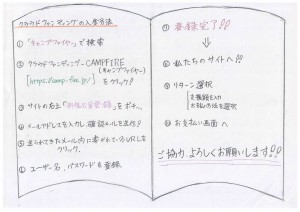 クラウドファンディングの入金方法
① 「キャンプファイヤー」で検索
② クラウドファンディング-CAMPFIRE
(キャンプファイヤー)
[https://camp-fire.jp/] をクリック!
③ サイトの右上「新規会員登録」をポチ。
④ メールアドレスを入力し確認メールを送信!
⑤ 送られてきたメール内に書かれているURLを
クリック.
⑥ ユーザー名、パスワードを登録.
⑦ 登録完了!!
⑧ 私たちのサイトへ!!
⑨ リターン選択
支援額を入力
お支払い方法を選択
⑩ お支払い画面へ
ご協力よろしくお願いします!!